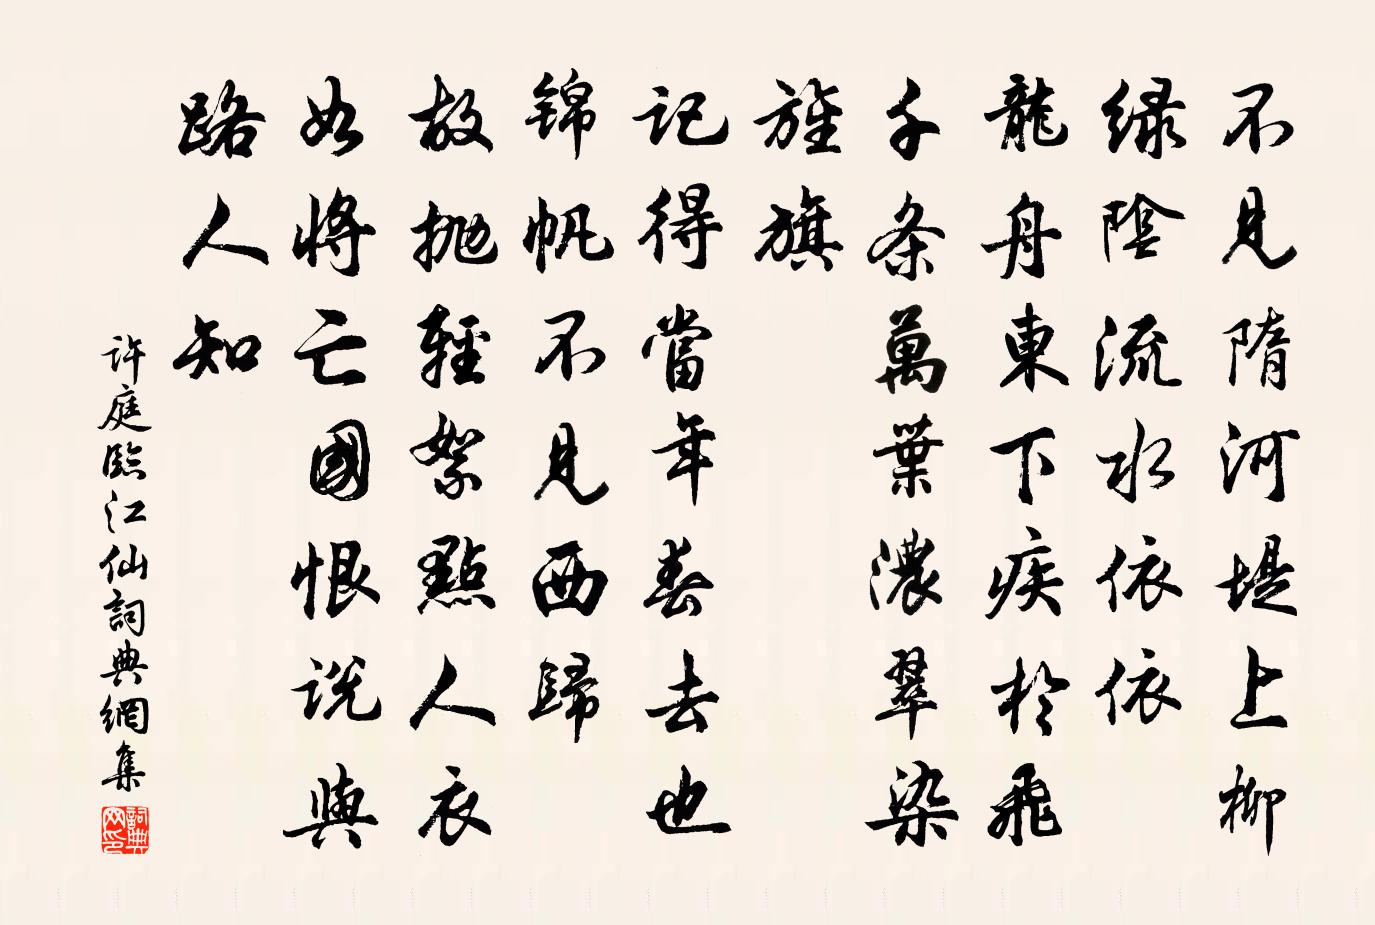 不見隋河堤上柳
緑陰流水依依
龍舟東下疾於飛
千条萬葉濃翠染
旌旗
記得當年春去也
錦帆不見西歸
故抛輕絮點人衣
如將亡國恨説與
路人知
許庭臨江仙詞典網集
詞典網印